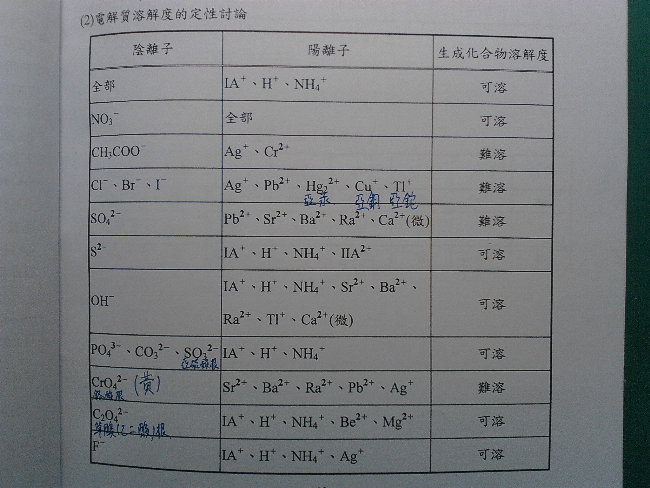 (2)電解質溶解度的定性討論
陰離子 陽離子 生成化合物溶解度
全部 IA⁺、H⁺、NH₄⁺ 可溶
NO₃⁻ 全部 可溶
CH₃COO⁻ Ag⁺、Cr²⁺ 難溶
Cl⁻、Br⁻、I⁻ Ag⁺、Pb²⁺、Hg₂²⁺、Cu⁺、Tl⁺ 難溶
亞汞 亞銅 亞鉈
SO₄²⁻ Pb²⁺、Sr²⁺、Ba²⁺、Ra²⁺、Ca²⁺(微) 難溶
S²⁻ IA⁺、H⁺、NH₄⁺、IIA²⁺ 可溶
OH⁻ IA⁺、H⁺、NH₄⁺、Sr²⁺、Ba²⁺、 可溶
Ra²⁺、Tl⁺、Ca²⁺(微)
PO₄³⁻、CO₃²⁻、SO₃²⁻ IA⁺、H⁺、NH₄⁺ 可溶
亞硫酸根
CrO₄²⁻ (黃) Sr²⁺、Ba²⁺、Ra²⁺、Pb²⁺、Ag⁺ 難溶
鉻酸根
C₂O₄²⁻ IA⁺、H⁺、NH₄⁺、Be²⁺、Mg²⁺ 可溶
草酸(乙二酸)根
F⁻ IA⁺、H⁺、NH₄⁺、Ag⁺ 可溶